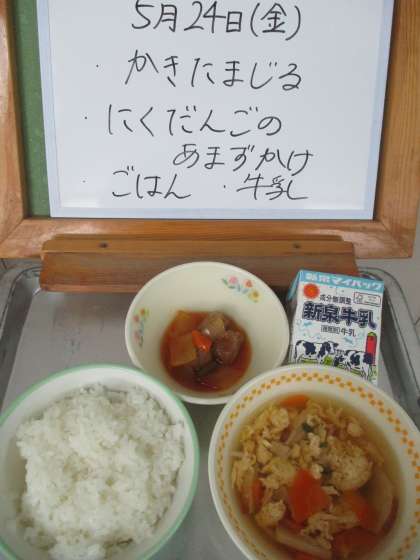 5月24日(金)
・かきたまじる
・にくだんごの
あまずかけ
・ごはん ・牛乳
新泉マイパック
成分無調整
新泉牛乳